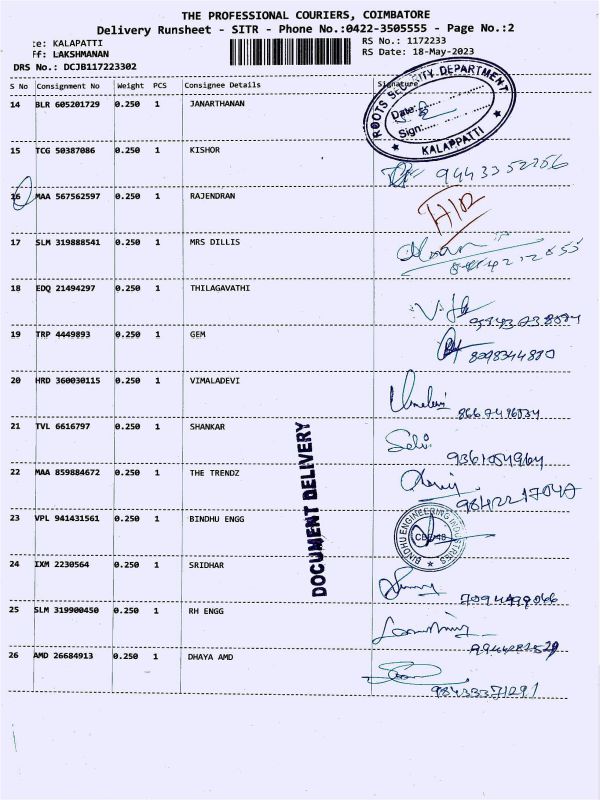 THE PROFESSIONAL COURIERS, COIMBATORE
Delivery Runsheet - SITR - Phone No.:0422-3505555 - Page No.:2
te: KALAPATTI
RS No.: 1172233
ff: LAKSHMANAN
RS Date: 18-May-2023
DRS No.: DCJB117223302
S No Consignment No Weight PCS Consignee Details Signature
ROOTS SECURITY DEPARTMENT
Date:
Sign:
KALAPPATTI
14 BLR 605201729 0.250 1 JANARTHANAN
15 TCG 50387086 0.250 1 KISHOR
16 MAA 567562597 0.250 1 RAJENDRAN
17 SLM 319888541 0.250 1 MRS DILLIS
18 EDQ 21494297 0.250 1 THILAGAVATHI
19 TRP 4449893 0.250 1 GEM
8098344880
20 HRD 360030115 0.250 1 VIMALADEVI
21 TVL 6616797 0.250 1 SHANKAR
Selvi
22 MAA 859884672 0.250 1 THE TRENDZ
23 VPL 941431561 0.250 1 BINDHU ENGG
BINDHU ENGINEERING INDUSTRIES
DOCUMENT DELIVERY
24 IXM 2230564 0.250 1 SRIDHAR
25 SLM 319900450 0.250 1 RH ENGG
26 AMD 26684913 0.250 1 DHAYA AMD